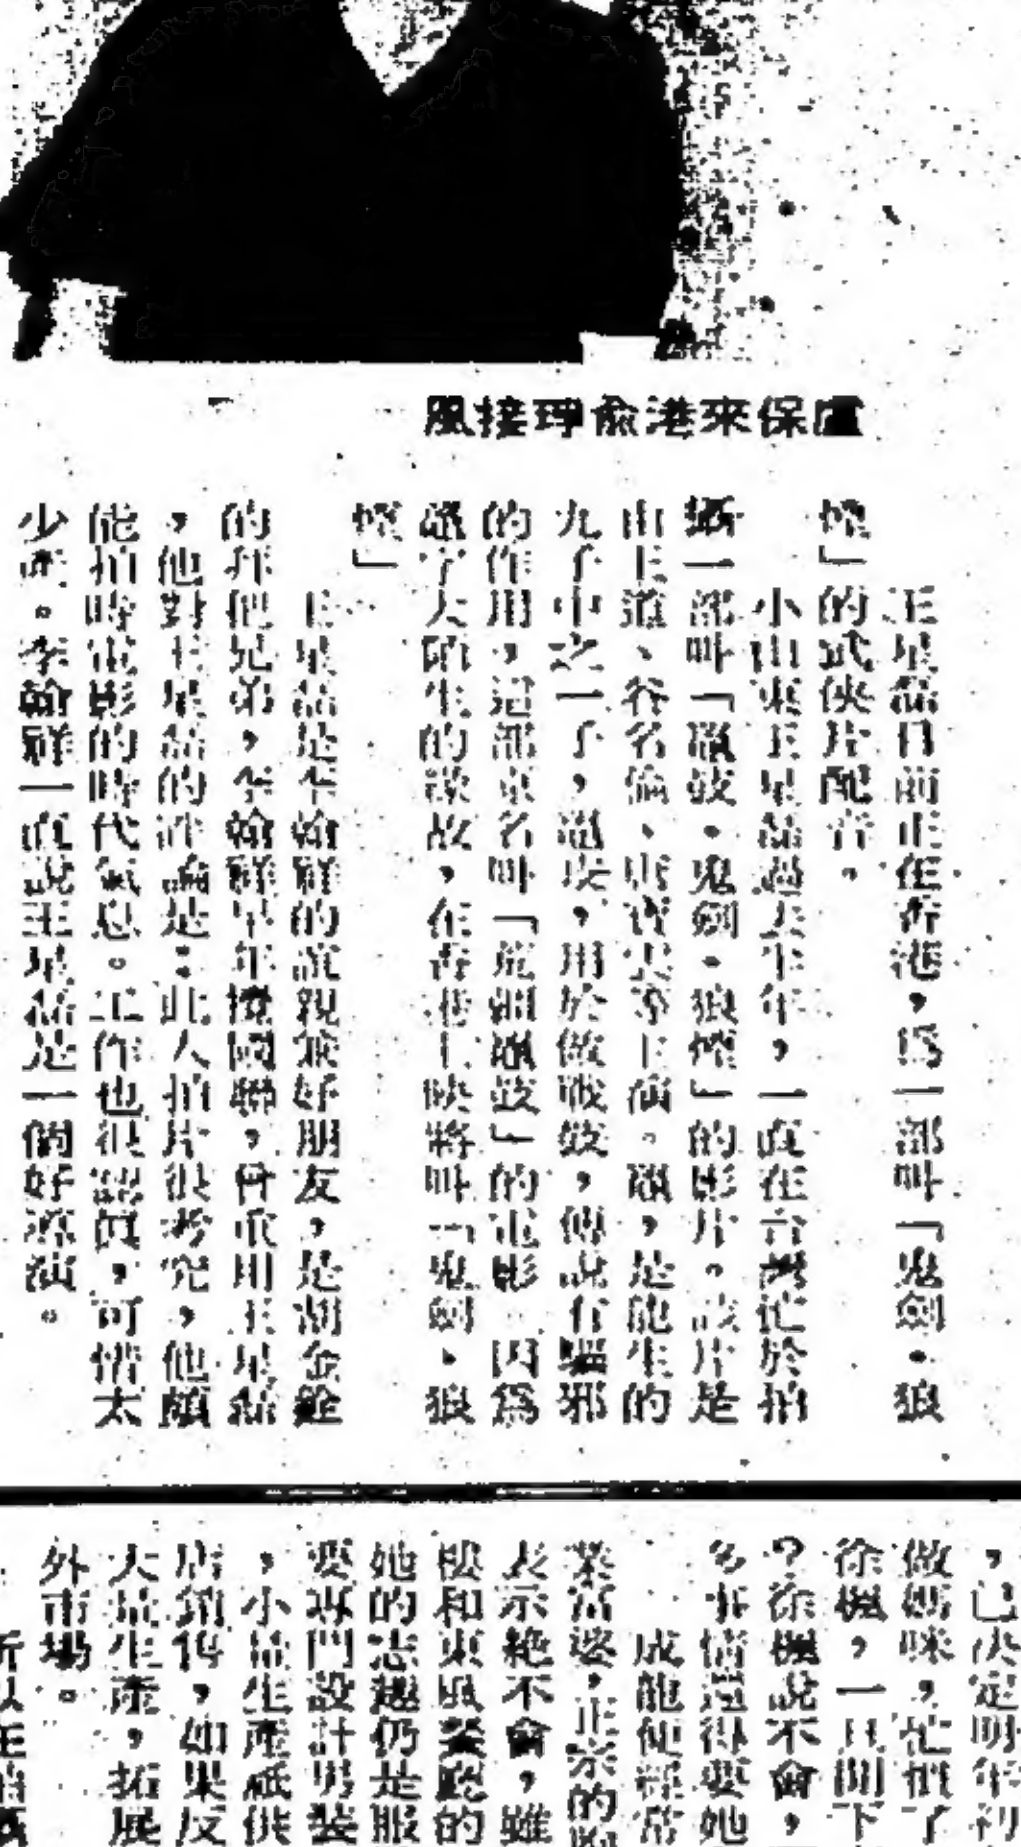 盧保來港俞琤接風
王星磊目前正在香港,為一部叫「鬼劍・狼
煙」的武俠片配音。
小山東王星磊過去半年,一直在台灣忙於拍
攝一部叫「鼓・鬼劍・狼煙」的影片。該片是
由王道、谷名倫、等主演。,是龍生的
九子中之一子,,用於做戰鼓,傳說有驅邪
的作用,這部原名叫「鼓」的電影 因為
字大陌生的緣故,在香港上映將叫「鬼劍・狼
煙」
王星磊是李翰祥的誼親兼好朋友,是胡金銓
的拜把兄弟,李翰祥早年攪國聯,曾重用王星磊
,他對王星磊的評論是:此人拍片很考究,他頗
能拍時電影的時代氣息。工作也很認真,可惜太
少產。李翰祥一直說王星磊是一個好導演。
,已決定明年
做媽咪,忙慣了
徐楓,一旦閒下
?徐楓說不會,
多事情還得要她
成龍便經常
業富婆,正宗的
表示絕不會,雖
松和東風餐廳的
她的志趣仍是服
要專門設計男裝
,小量生產祇供
店銷售,如果反
大量生產,拓展
外市場。
所以王